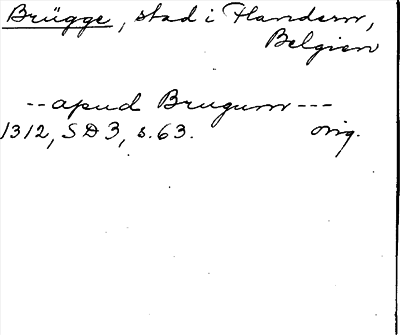 Brügge, stad i Flandern,
Belgien
-- apud Brugum ---
1312, SD3, s.63. orig.